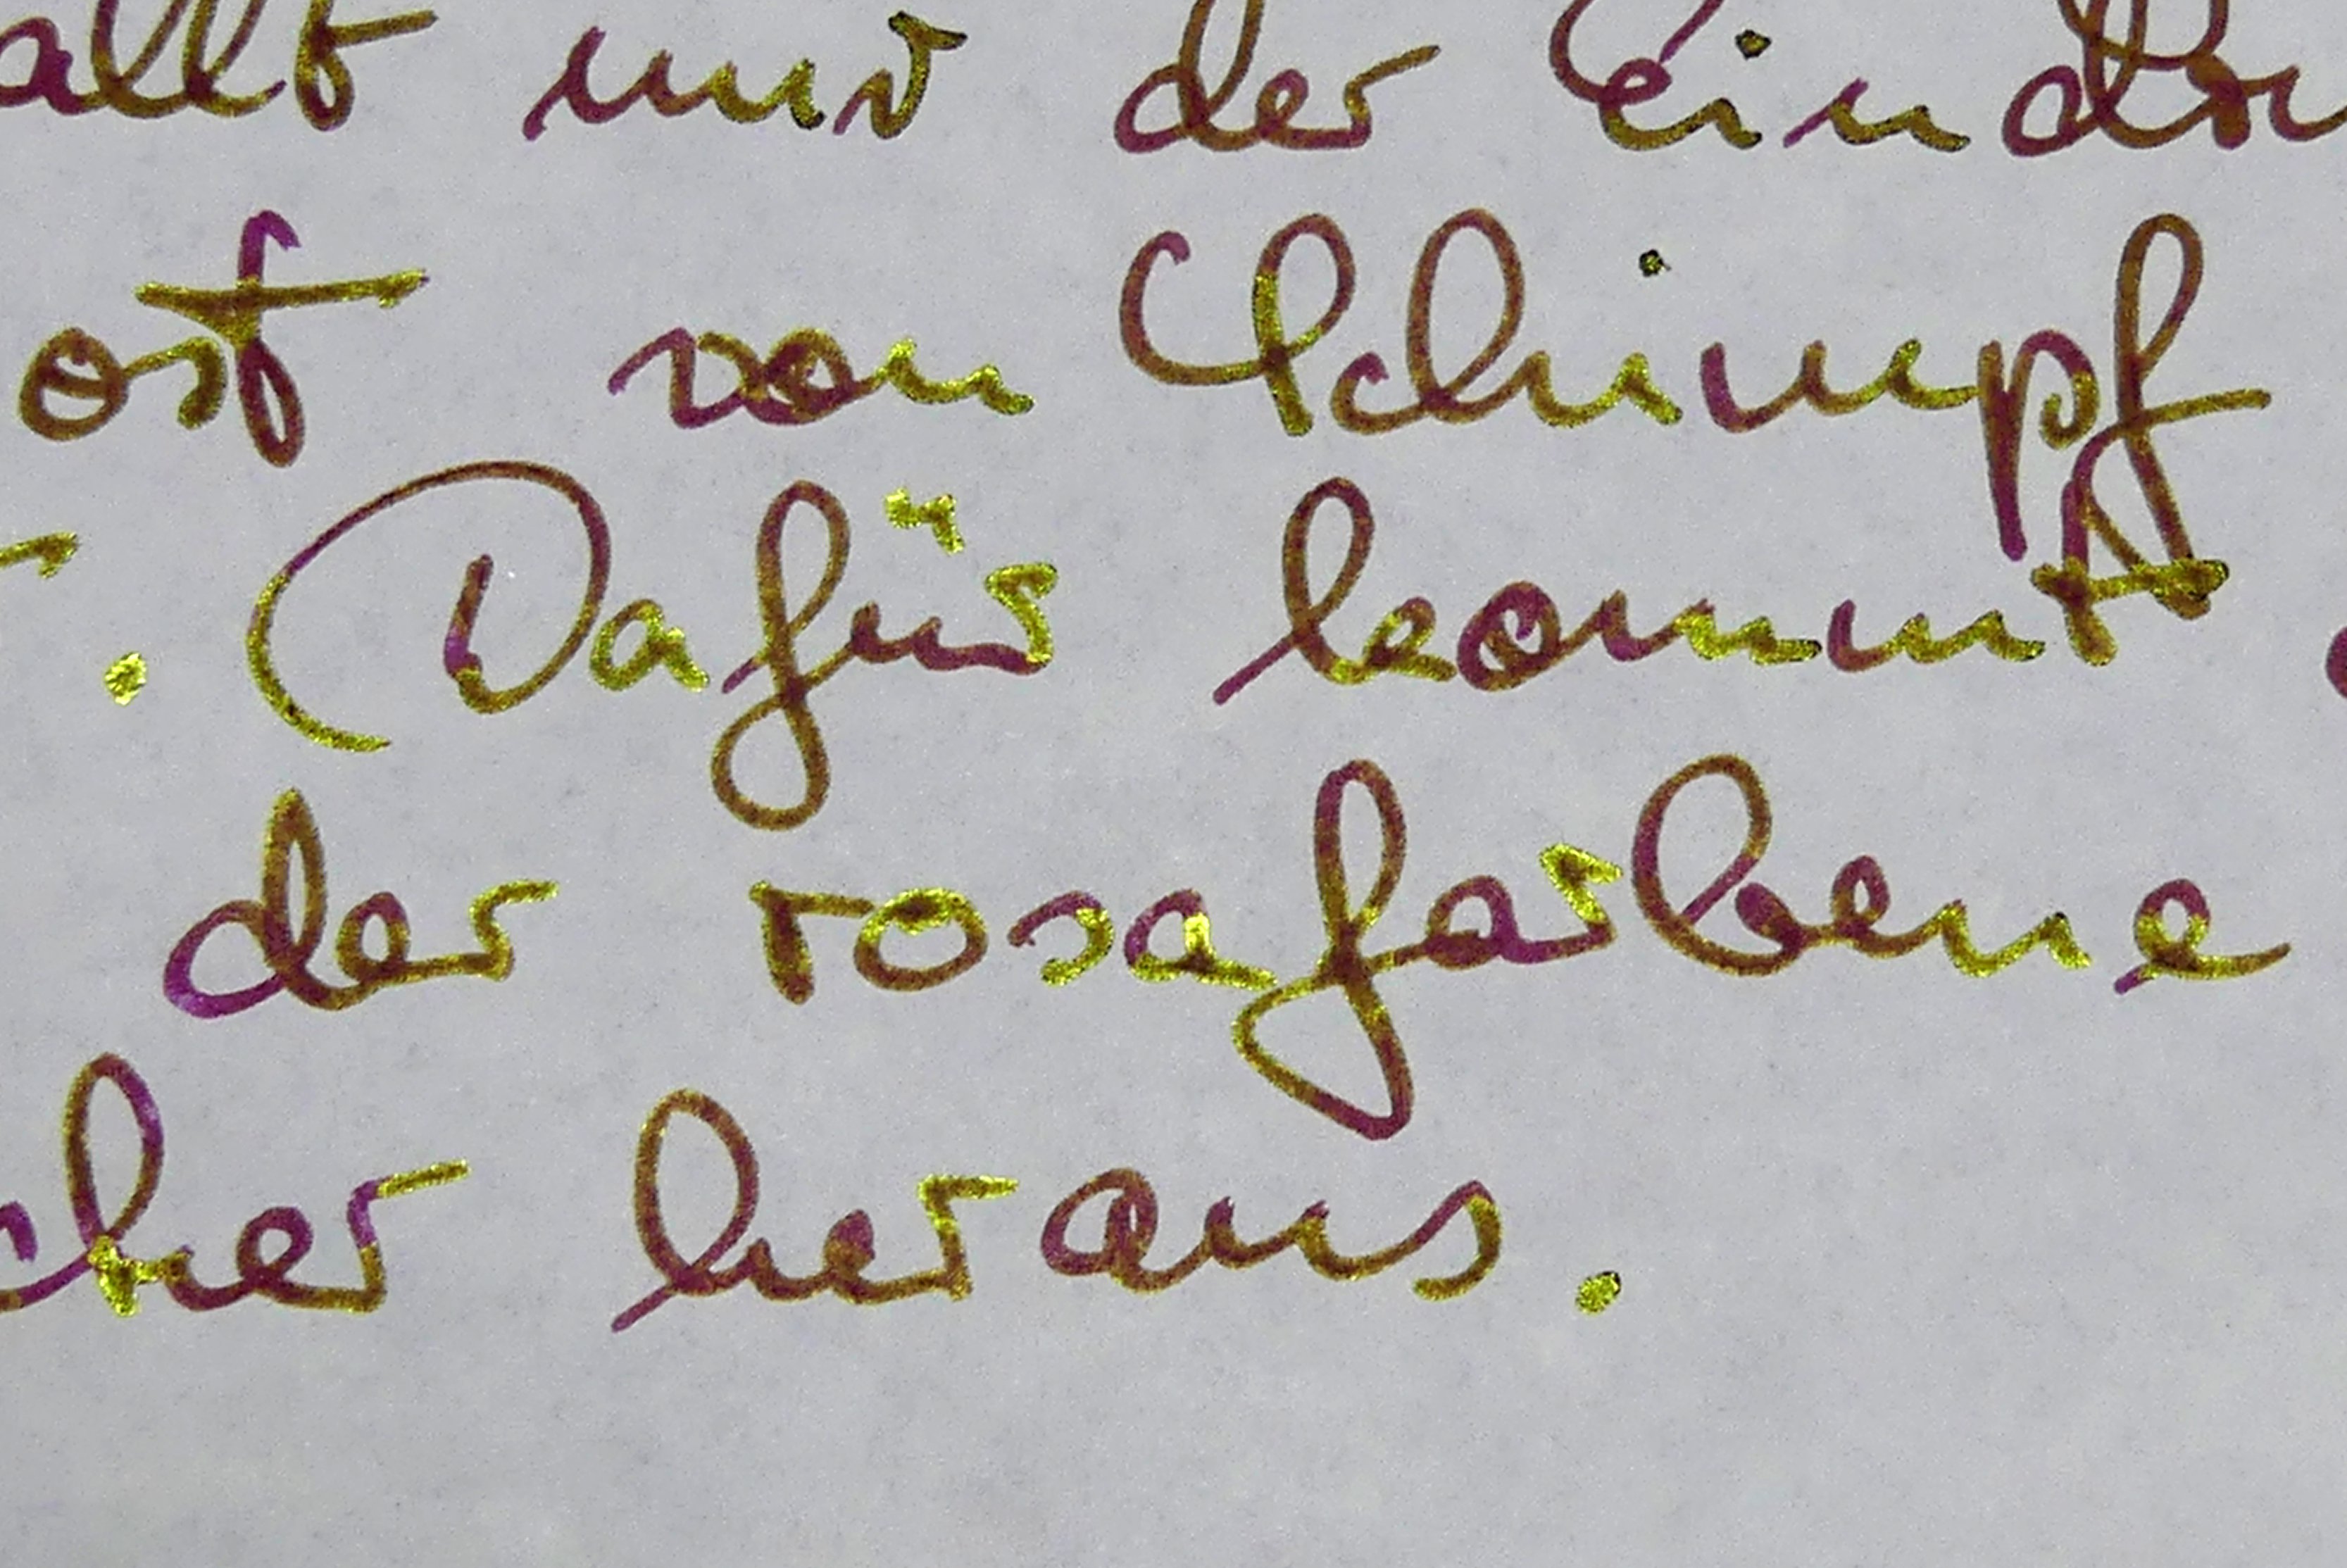 allt mir der Eindru
ort von Schimpf
. Dafür kommt
der rosafarbene
cher heraus.